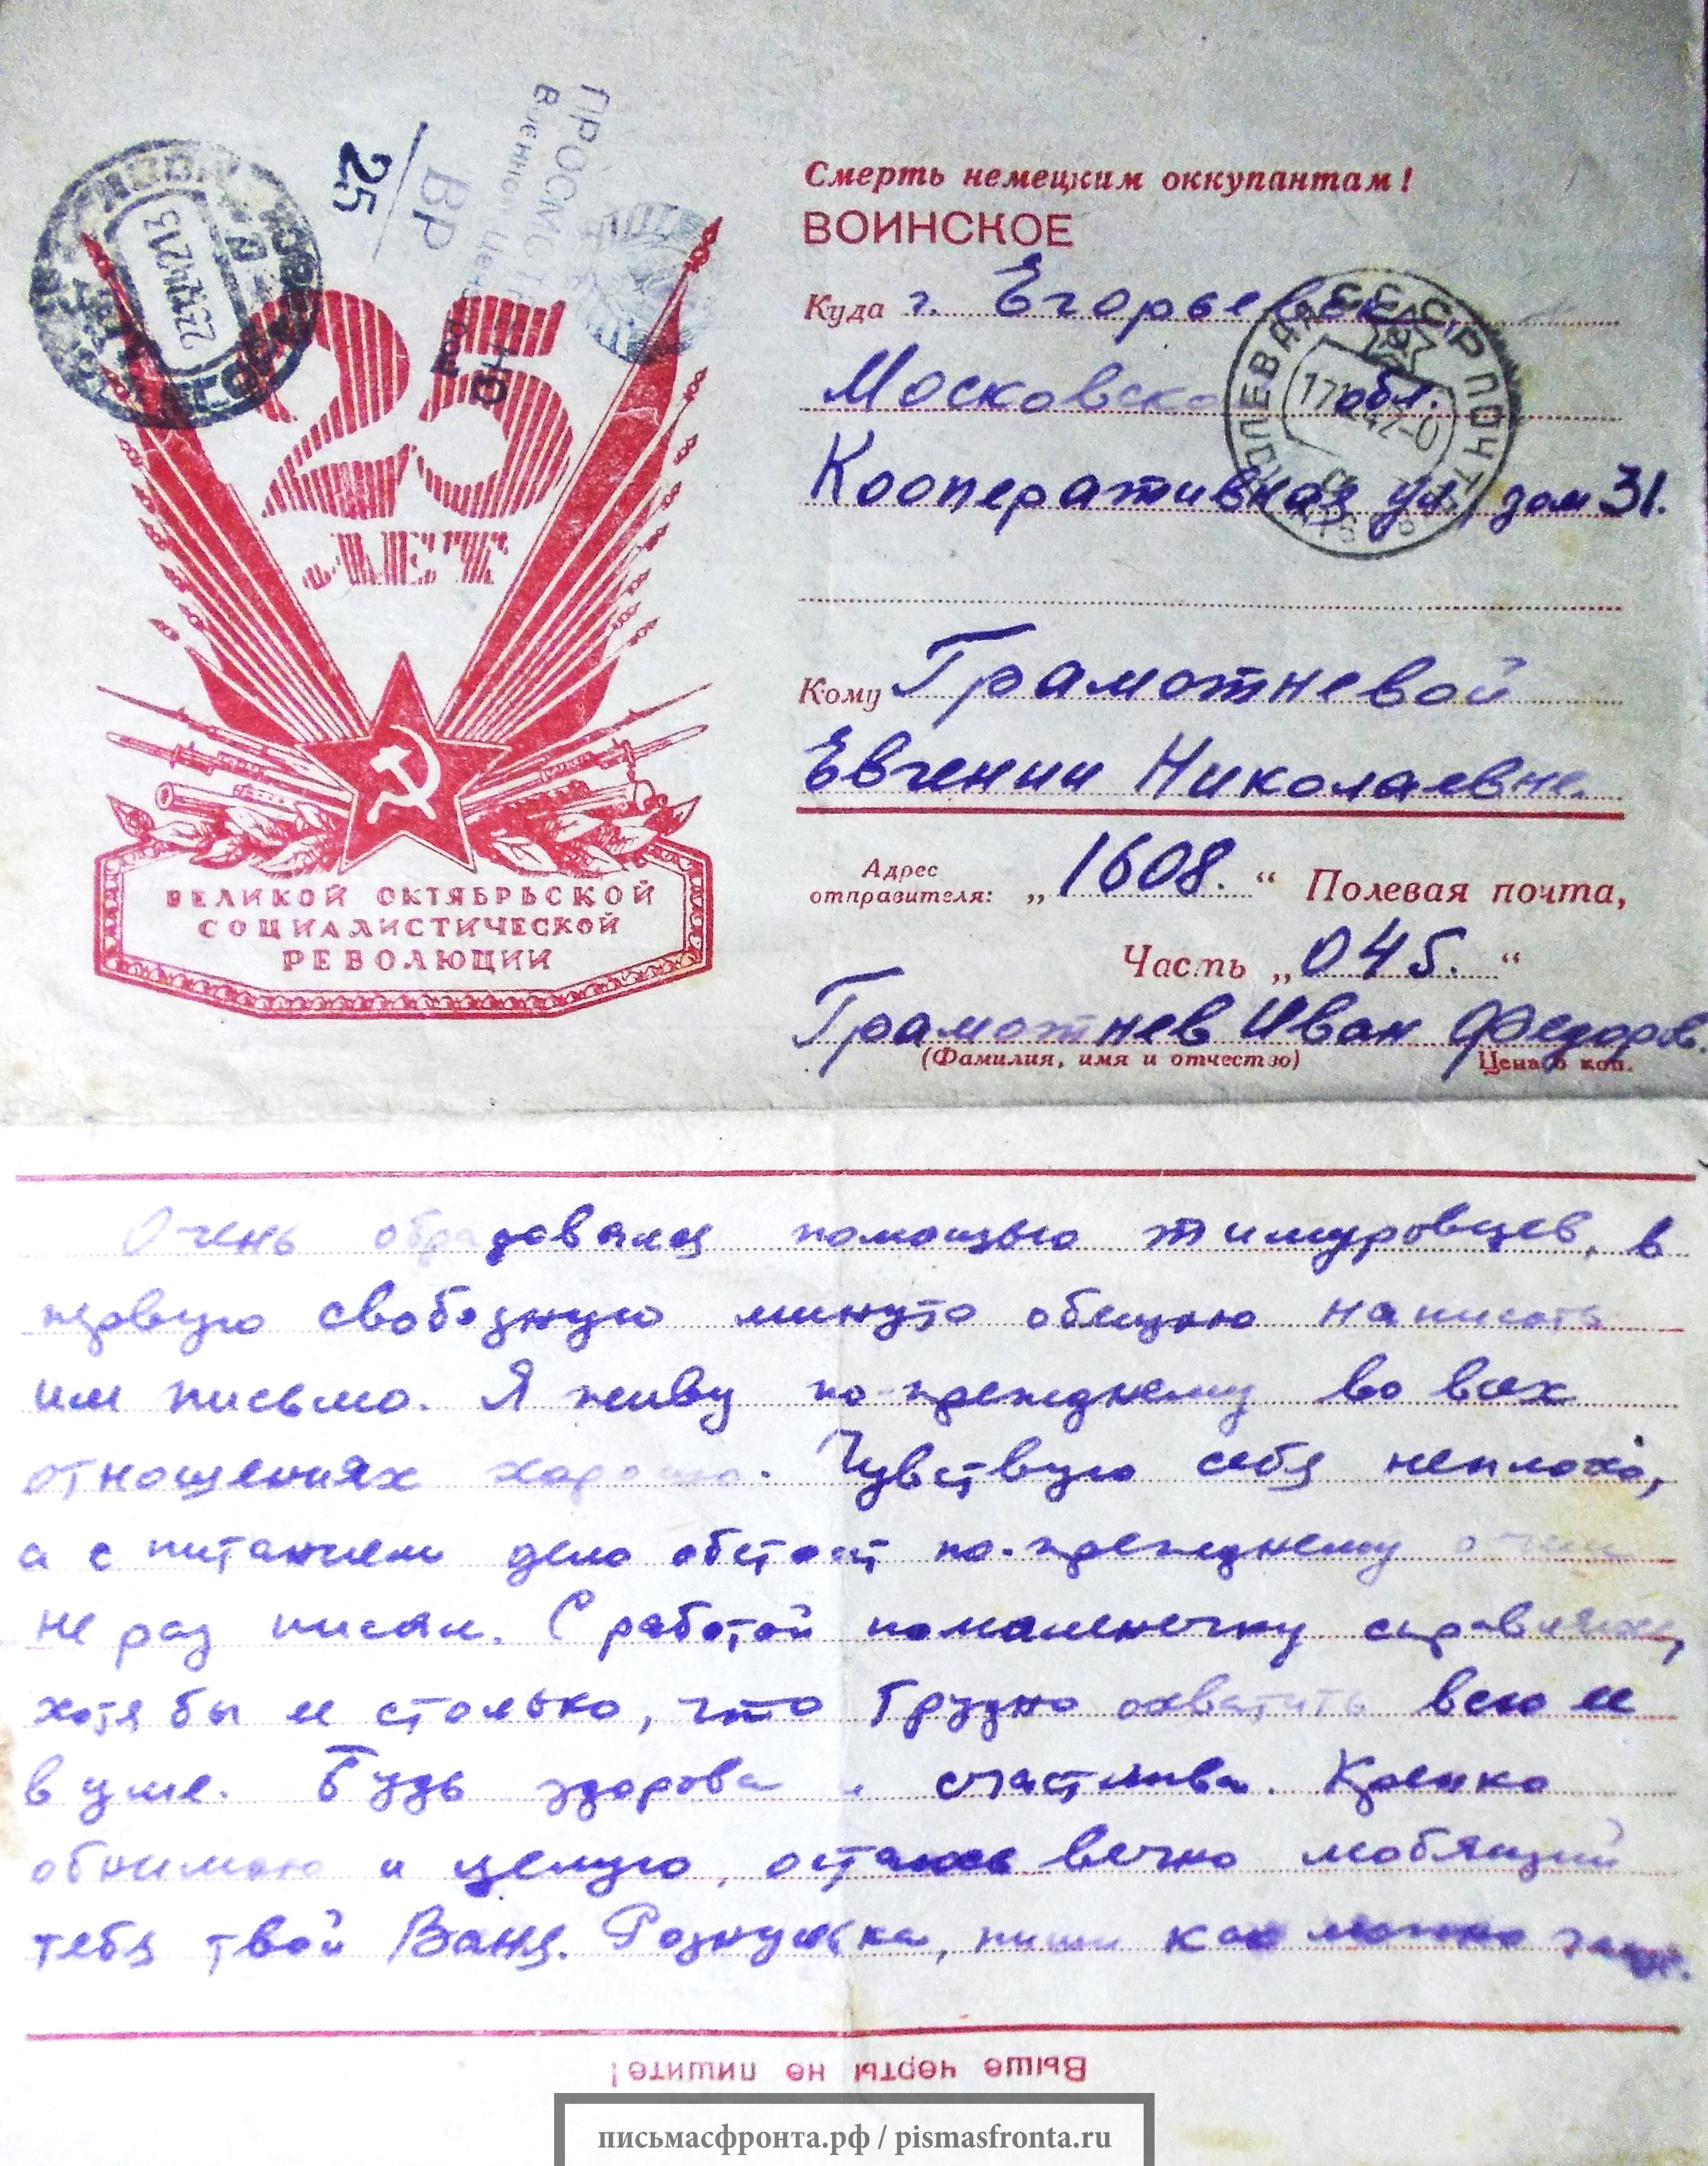 ПРОСМОТРЕНО
Военной Цензурой
ВР
25
22.12.42.13
25
ЛЕТ
ВЕЛИКОЙ ОКТЯБРЬСКОЙ
СОЦИАЛИСТИЧЕСКОЙ
РЕВОЛЮЦИИ
Смерть немецким оккупантам!
ВОИНСКОЕ
Куда г. Егорьевск,
Московской обл.
Кооперативная ул. дом 31.
СССР ПОЛЕВАЯ ПОЧТА
Кому Грамотневой
Евгении Николаевне.
Адрес
отправителя: „1608.“ Полевая почта,
Часть „045.“
Грамотнев Иван Федоров.
(Фамилия, имя и отчество) Цена коп.
Очень обрадовался помощью тимуровцев, в
первую свободную минуту обещаю написать
им письмо. Я живу по-прежнему во всех
отношениях хорошо. Чувствую себя неплохо,
а с питанием дело обстоит по-прежнему о чем
не раз писал. С работой помаленечку справляюсь,
хотя бы ее столько, что трудно охватить всю ее
в уме. Будь здорова и счастлива. Крепко
обнимаю и целую, остаюсь вечно любящий
тебя твой Ваня. пиши как можно чаще.
Выше черты не пишите!
письмасфронта.рф / pismasfronta.ru